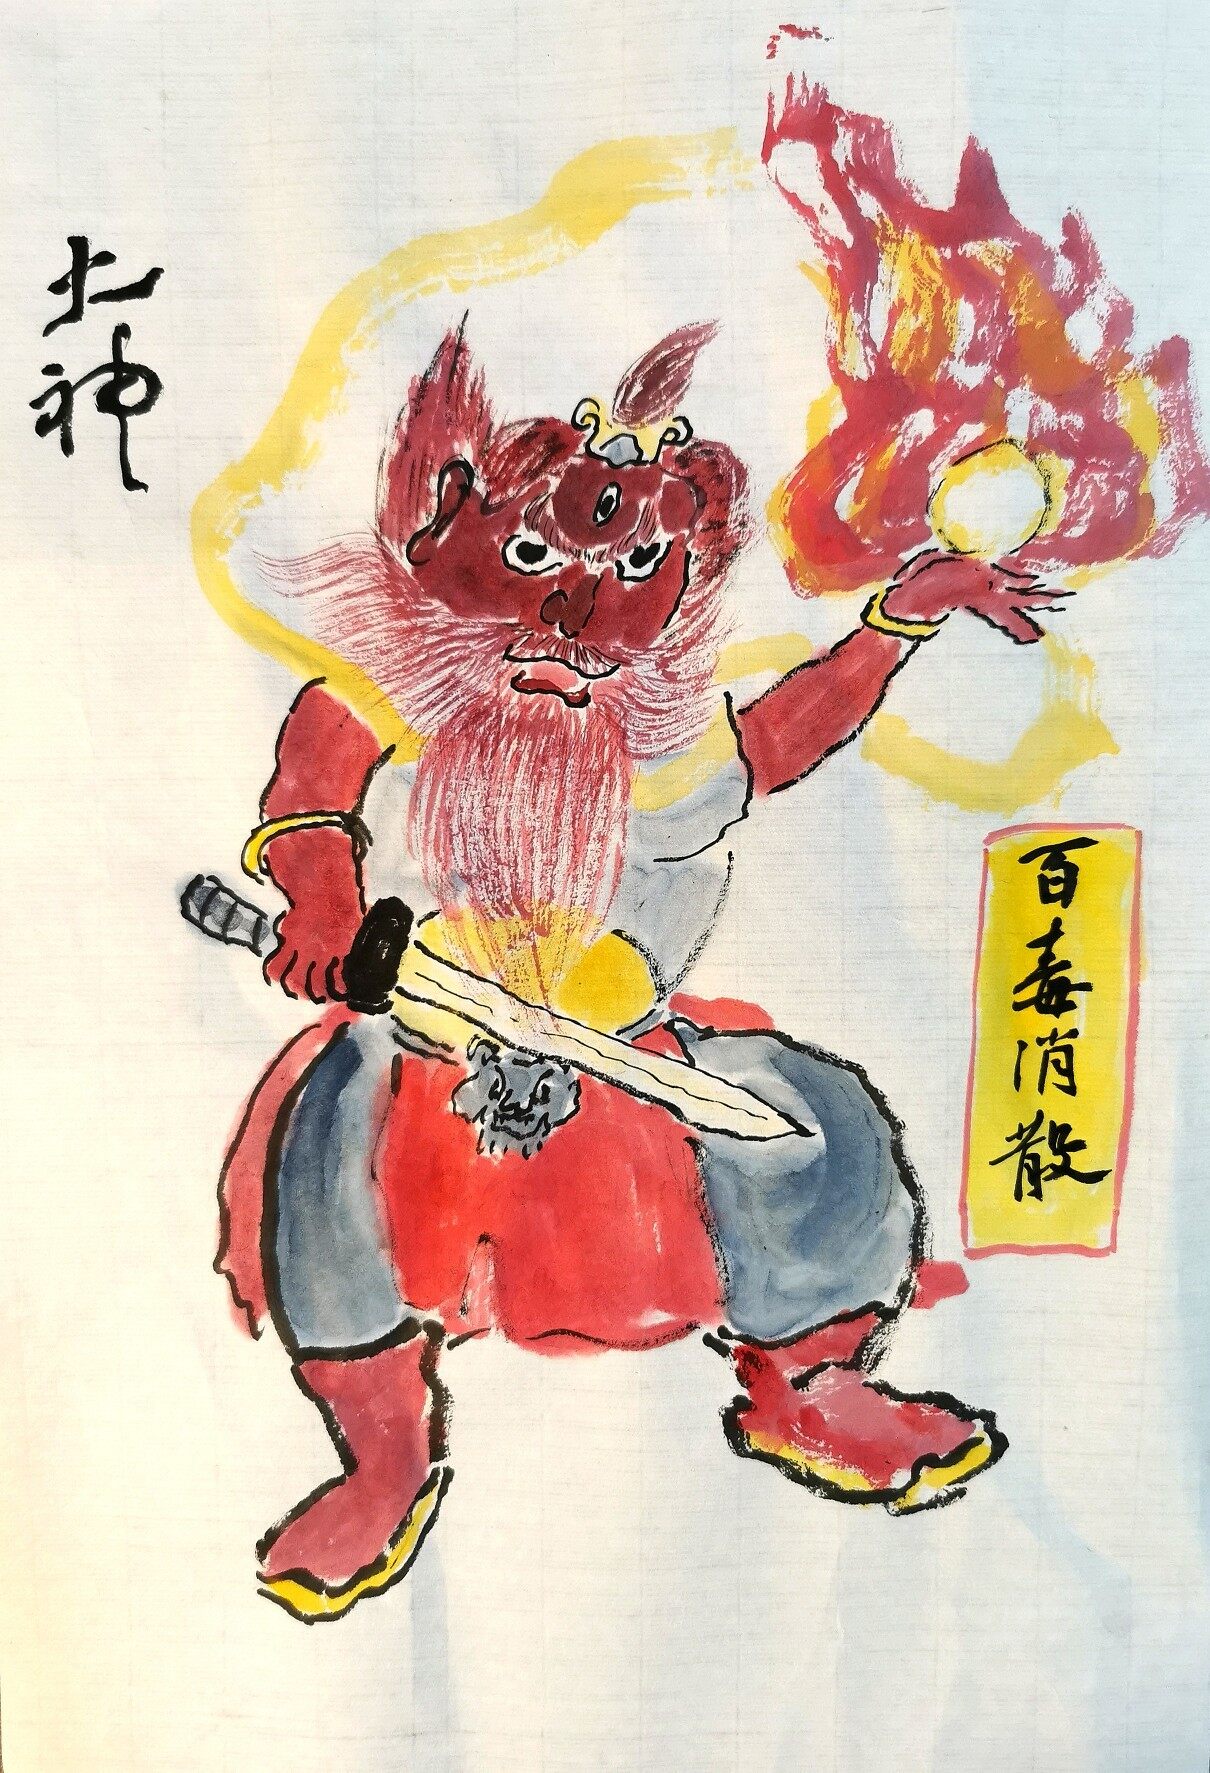 火神
百毒消散